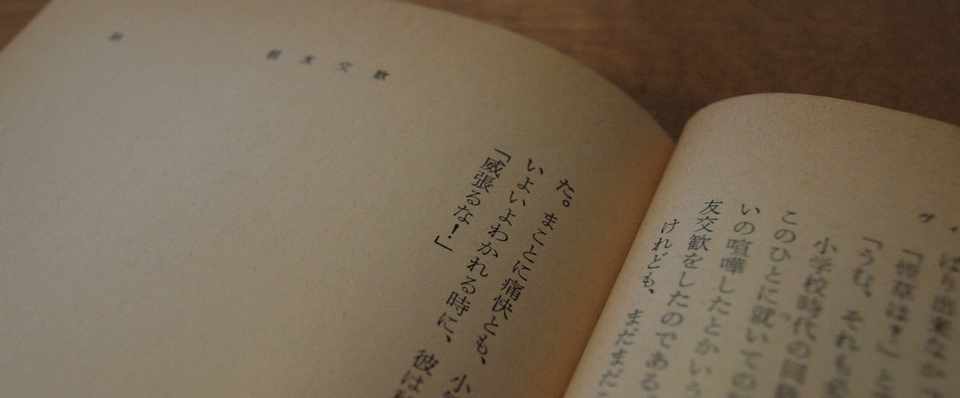 親友交歓
ばり出来なかつ
「煙草は？」と
「うむ、それも
小学校時代の同
このひとに就いての
いの喧嘩したとかいう
友交歓をしたのである
けれども、まだまだ
た。まことに痛快とも、小
いよいよわかれる時に、彼は
「威張るな！」